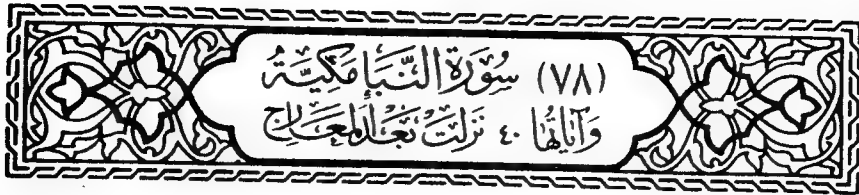 (٧٨) سُورَة النَّبَإ مَكيَّةٌ
وَآيَاتُهَا ٤٠ نَزَلَتْ بَعْدَ المَعَارِجِ